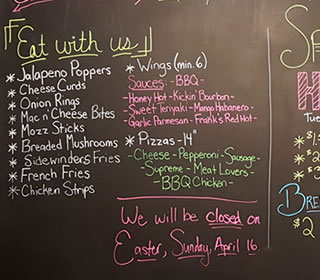 Eat with us
* Jalapeno Poppers
* Cheese Curds
* Onion Rings
* Mac n' Cheese Bites
* Mozz Sticks
* Breaded Mushrooms
* Sidewinders Fries
* French Fries
* Chicken Strips
* Wings (min. 6)
Sauces: - BBQ -
- Honey Hot - Kickin' Bourbon -
- Sweet Teriyaki - Mango Habanero -
- Garlic Parmesan - Frank's Red Hot -
* Pizzas - 14"
- Cheese - Pepperoni - Sausage -
- Supreme - Meat Lovers -
- BBQ Chicken -
We will be closed on
Easter, Sunday, April 16.